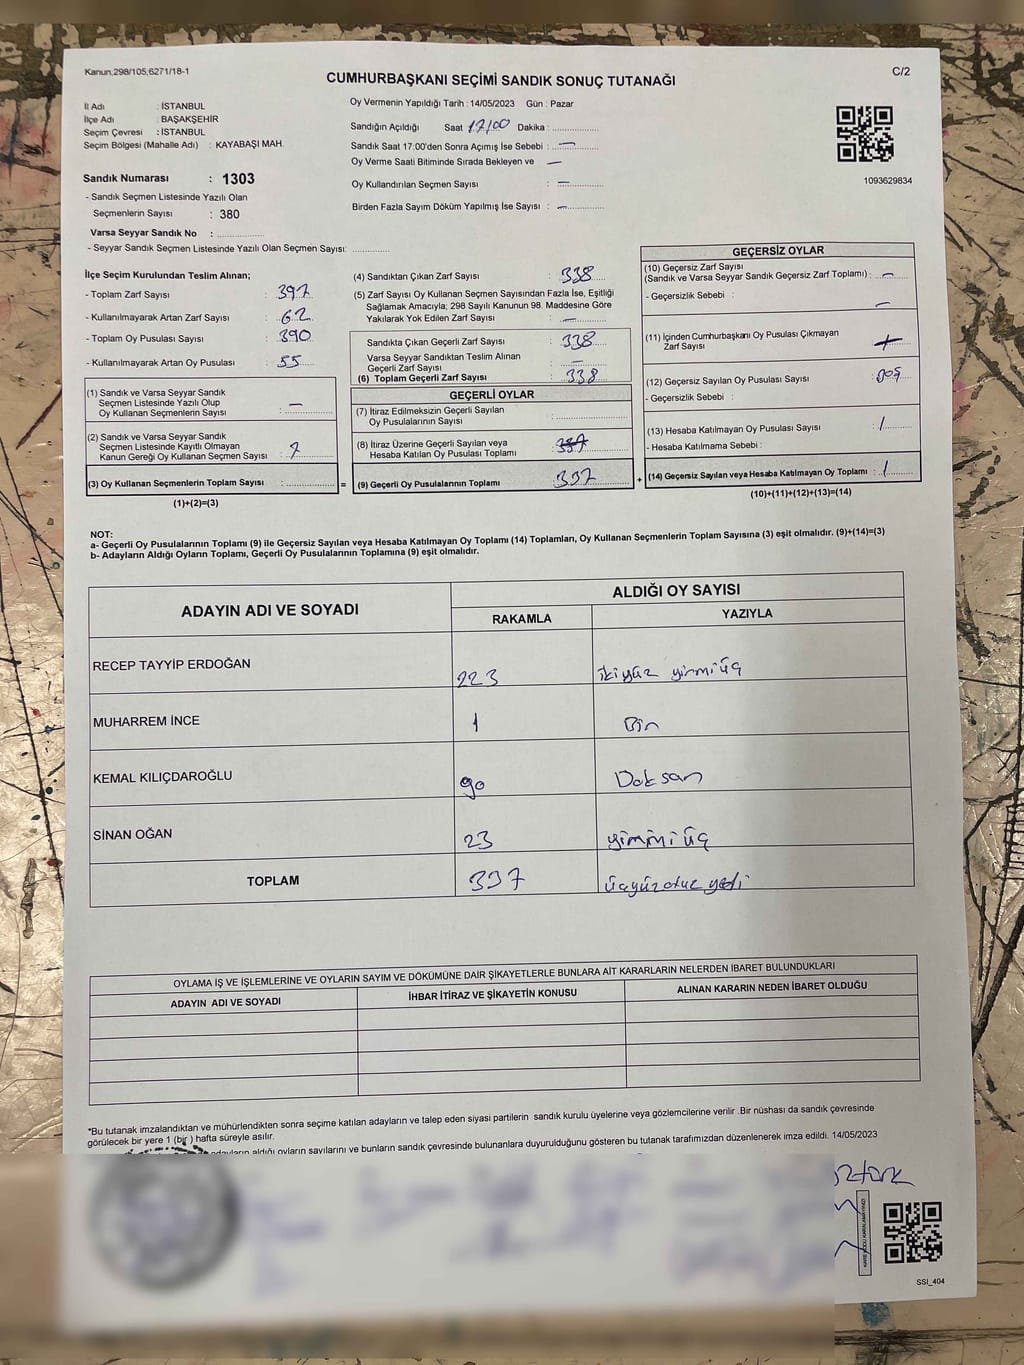 Kanun,298/105,6271/18-1
C/2
CUMHURBAŞKANI SEÇİMİ SANDIK SONUÇ TUTANAĞI
İl Adı : İSTANBUL
İlçe Adı : BAŞAKŞEHİR
Seçim Çevresi : İSTANBUL
Seçim Bölgesi (Mahalle Adı) : KAYABAŞI MAH.
Sandık Numarası : 1303
- Sandık Seçmen Listesinde Yazılı Olan
Seçmenlerin Sayısı : 380
Varsa Seyyar Sandık No :
- Seyyar Sandık Seçmen Listesinde Yazılı Olan Seçmen Sayısı:
Oy Vermenin Yapıldığı Tarih : 14/05/2023 Gün : Pazar
Sandığın Açıldığı Saat 17/00 Dakika :
Sandık Saat 17:00'den Sonra Açımış İse Sebebi : —
Oy Verme Saati Bitiminde Sırada Bekleyen ve —
Oy Kullandırılan Seçmen Sayısı : —
Birden Fazla Sayım Döküm Yapılmış İse Sayısı : —
1093629834
İlçe Seçim Kurulundan Teslim Alınan;
- Toplam Zarf Sayısı : 397
- Kullanılmayarak Artan Zarf Sayısı : 62
- Toplam Oy Pusulası Sayısı : 390
- Kullanılmayarak Artan Oy Pusulası : 55
(1) Sandık ve Varsa Seyyar Sandık
Seçmen Listesinde Yazılı Olup
Oy Kullanan Seçmenlerin Sayısı : —
(2) Sandık ve Varsa Seyyar Sandık
Seçmen Listesinde Kayıtlı Olmayan
Kanun Gereği Oy Kullanan Seçmen Sayısı : 7
(3) Oy Kullanan Seçmenlerin Toplam Sayısı : =
(1)+(2)=(3)
(4) Sandıktan Çıkan Zarf Sayısı : 338
(5) Zarf Sayısı Oy Kullanan Seçmen Sayısından Fazla İse, Eşitliği
Sağlamak Amacıyla; 298 Sayılı Kanunun 98. Maddesine Göre
Yakılarak Yok Edilen Zarf Sayısı : —
Sandıkta Çıkan Geçerli Zarf Sayısı : 338
Varsa Seyyar Sandıktan Teslim Alınan
Geçerli Zarf Sayısı : —
(6) Toplam Geçerli Zarf Sayısı : 338
GEÇERLİ OYLAR
(7) İtiraz Edilmeksizin Geçerli Sayılan
Oy Pusulalarının Sayısı :
(8) İtiraz Üzerine Geçerli Sayılan veya
Hesaba Katılan Oy Pusulası Toplamı : 337
(9) Geçerli Oy Pusulalarının Toplamı : 337 +
GEÇERSİZ OYLAR
(10) Geçersiz Zarf Sayısı
(Sandık ve Varsa Seyyar Sandık Geçersiz Zarf Toplamı) : —
- Geçersizlik Sebebi : —
(11) İçinden Cumhurbaşkanı Oy Pusulası Çıkmayan
Zarf Sayısı :
(12) Geçersiz Sayılan Oy Pusulası Sayısı :
- Geçersizlik Sebebi :
(13) Hesaba Katılmayan Oy Pusulası Sayısı : /
- Hesaba Katılmama Sebebi :
(14) Geçersiz Sayılan veya Hesaba Katılmayan Oy Toplamı : 1
(10)+(11)+(12)+(13)=(14)
NOT:
a- Geçerli Oy Pusulalarının Toplamı (9) ile Geçersiz Sayılan veya Hesaba Katılmayan Oy Toplamı (14) Toplamları, Oy Kullanan Seçmenlerin Toplam Sayısına (3) eşit olmalıdır. (9)+(14)=(3)
b- Adayların Aldığı Oyların Toplamı, Geçerli Oy Pusulalarının Toplamına (9) eşit olmalıdır.
ADAYIN ADI VE SOYADI
ALDIĞI OY SAYISI
RAKAMLA YAZIYLA
RECEP TAYYİP ERDOĞAN 223 ikiyüz yirmi üç
MUHARREM İNCE 1 Bir
KEMAL KILIÇDAROĞLU 90 Doksan
SİNAN OĞAN 23 yirmi üç
TOPLAM 337 üçyüz otuz yedi
OYLAMA İŞ VE İŞLEMLERİNE VE OYLARIN SAYIM VE DÖKÜMÜNE DAİR ŞİKAYETLERLE BUNLARA AİT KARARLARIN NELERDEN İBARET BULUNDUKLARI
ADAYIN ADI VE SOYADI İHBAR İTİRAZ VE ŞİKAYETİN KONUSU ALINAN KARARIN NEDEN İBARET OLDUĞU
*Bu tutanak imzalandıktan ve mühürlendikten sonra seçime katılan adayların ve talep eden siyasi partilerin sandık kurulu üyelerine veya gözlemcilerine verilir .Bir nüshası da sandık çevresinde
görülecek bir yere 1 (bir ) hafta süreyle asılır.
aldığı oyların sayılarını ve bunların sandık çevresinde bulunanlara duyurulduğunu gösteren bu tutanak tarafımızdan düzenlenerek imza edildi. 14/05/2023
SSI_404